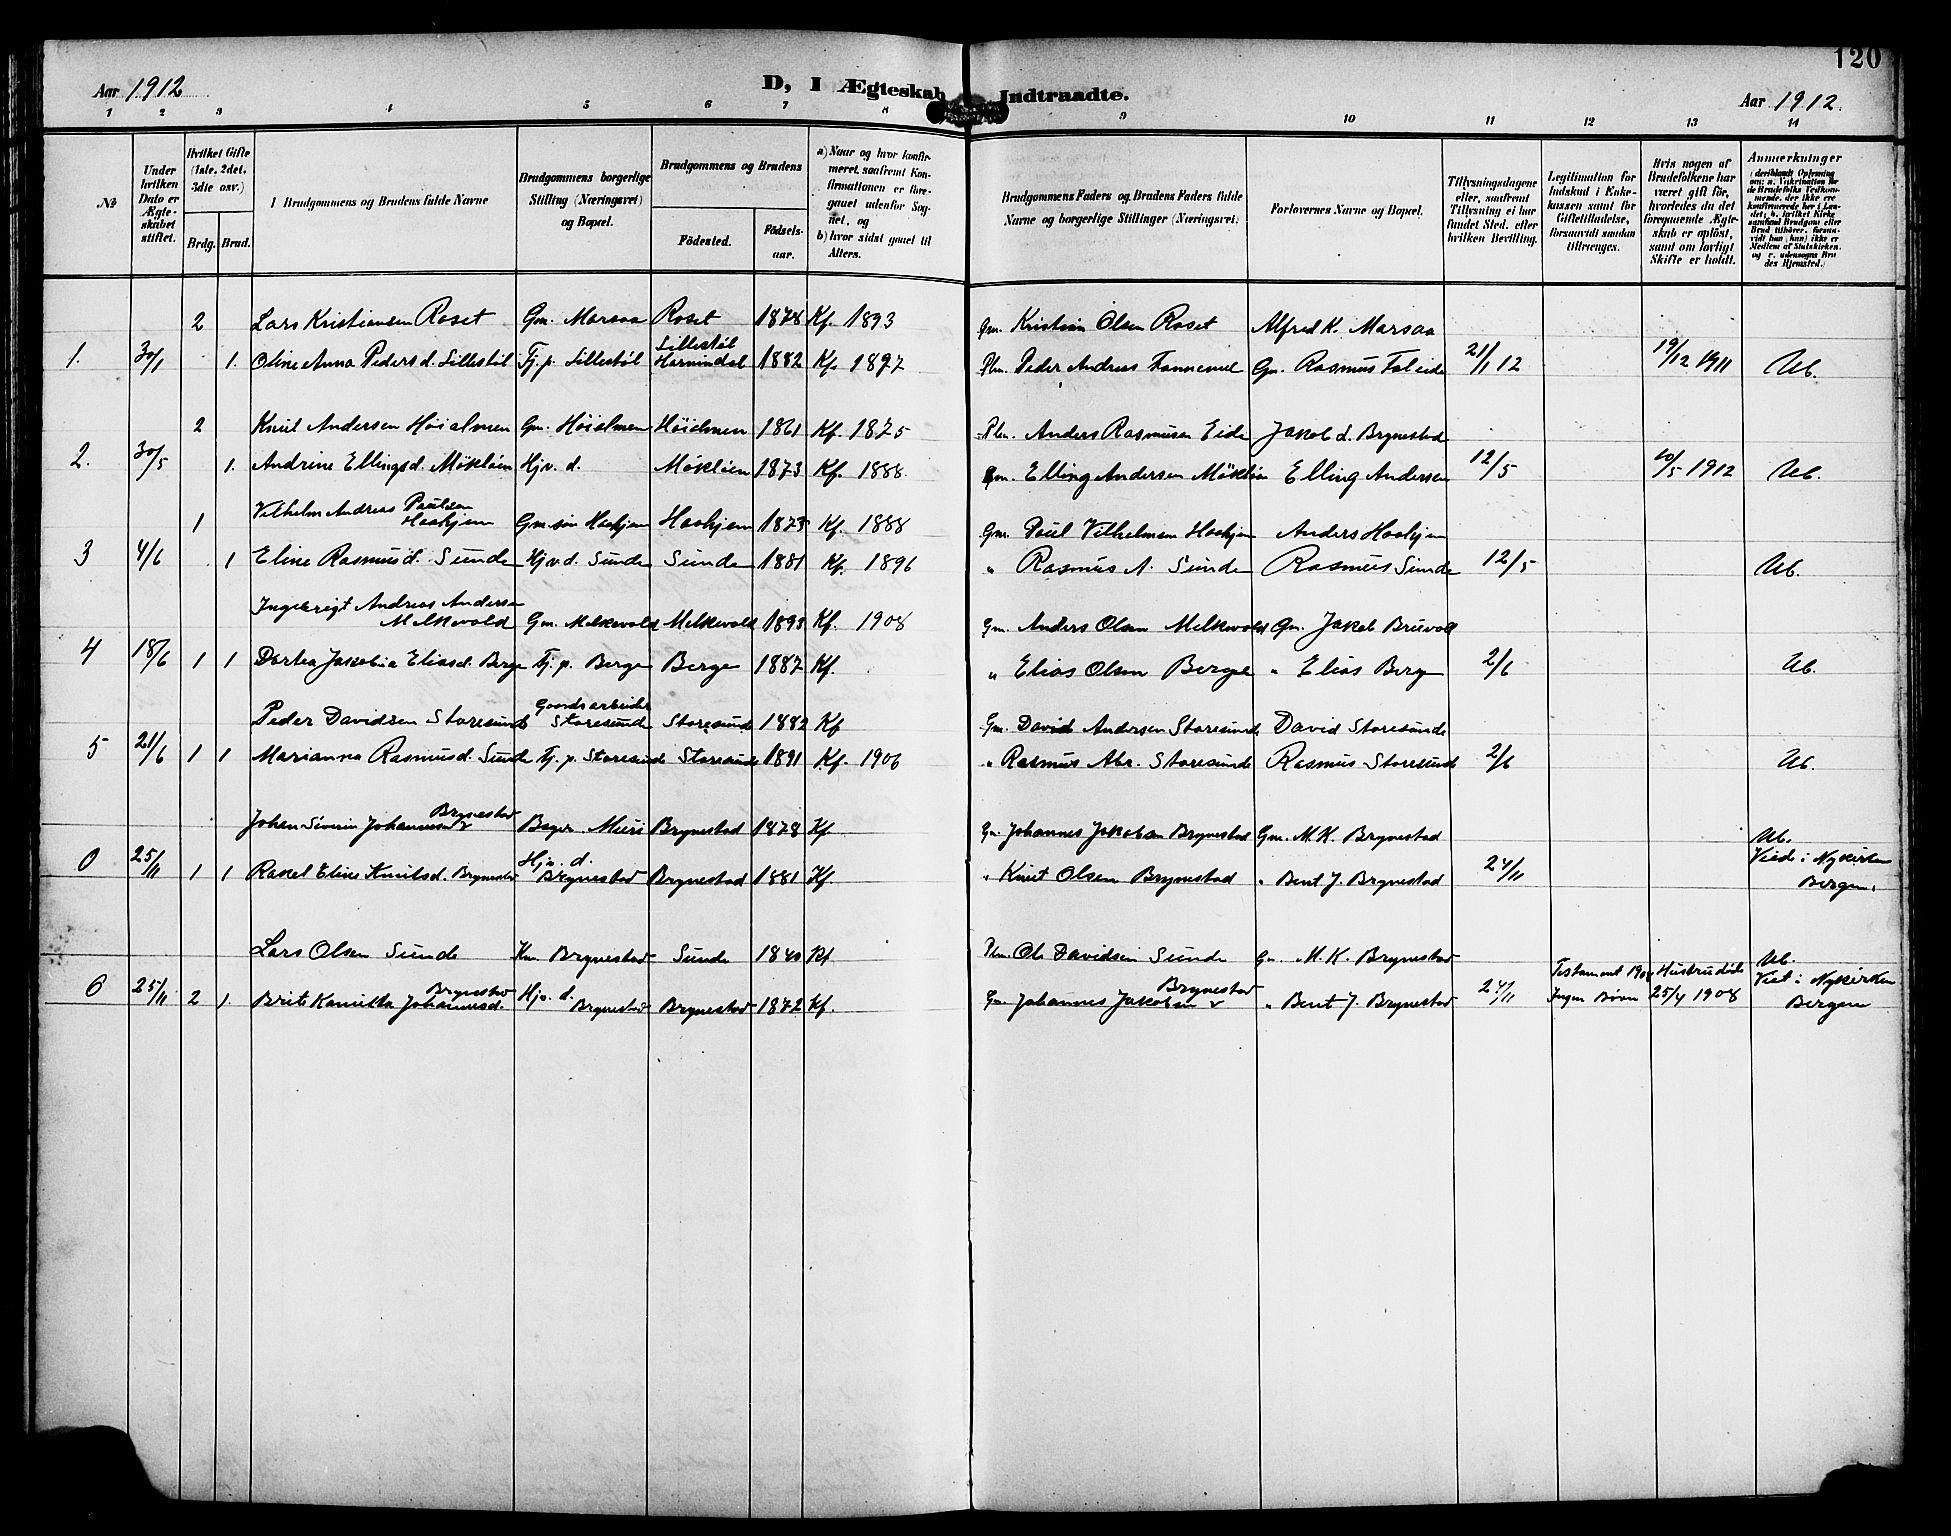 120
Aar 1912
D, I Ægteskab Indtraadte.
Aar 1912.
1 2 3 4 5 6 7 8 9 10 11 12 13 14
№
Under hvilken Dato er Ægteskabet stiftet.
Hvilket Gifte (1ste, 2det, 3die osv.)
Brdg. Brud.
I Brudgommens og Brudens fulde Navne
Brudgommens borgerlige Stilling (Næringsvei) og Bopæl.
Brudgommens og Brudens
Födested.
Födselsaar.
a) Naar og hvor konfirmeret, saafremt Konfirmationen er foregaaet udenfor Sognet, og
b) hvor sidst gaaet til Alters.
Brudgommens Faders og Brudens Faders fulde Navne og borgerlige Stillinger (Næringsvei)
Forlovernes Navne og Bopæl.
Tillysningsdagene eller, saafremt Tillysning ei har fundet Sted, efter hvilken Bevilling.
Legitimation for Indskud i Enkekassen samt for Giftetilladelse, forsaavidt saadan tiltrænges.
Hvis nogen af Brudefolkene har været gift för, hvorledes da det foregaaende Ægteskab er oplöst, samt om lovligt Skifte er holdt.
Anmærkninger
2 Lars Kristiansen Roset Gm. Marsaa Roset 1878 Kf. 1893 Gm. Kristian Olsen Roset Alfred K. Marsaa
1. 30/1 1. Oline Anna Pedersd. Sillestøl Tj. p. Sillestøl Sillestøl Hornindal 1882 Kf. 1897 Plm. Peder Andreas Gm. Rasmus Faleide 21/1 12 19/12 1911 Ub.
2 Knut Andersen Høialmen Gm. Høialmen Høialmen 1861 Kf. 1875 Plm. Anders Rasmusen Eide Jakob d. Brynestad
2. 30/5 1. Andrine Ellingsd. Mökløien Hjv. d. Mökløien 1873 Kf. 1888 Gm. Elling Andersen Mökløien Elling Andersen 12/5 10/5 1912 Ub.
1 Vilhelm Andreas Paulsen Haahjem Gm. søn Haahjem Haahjem 1873 Kf. 1888 Gm. Paul Vilhelmsen Haahjem Anders Haahjem
3 4/6 1 Eline Rasmusd. Sunde Hjv. d. Sunde Sunde 1881 Kf. 1896 " Rasmus A. Sunde Rasmus Sunde 12/5 Ub.
Ingebrigt Andreas Andersen Melkevold Gm. Melkevold Melkevold 1893 Kf. 1908 Gm. Anders Olsen Melkevold Gm. Jakob Bruvoll
4 18/6 1 1 Dortea Jakobia Eliasd. Berge Tj. p. Berge Berge 1887 Kf. " Elias Olsen Berge " Elias Berge 2/6 Ub.
Peder Davidsen Storesunde Gaardsarbeider Storesunde Storesunde 1882 Kf Gm. David Andersen Storesunde David Storesunde
5 21/6 1 1 Marianna Rasmusd. Sunde Tj. p. Storesunde Storesunde 1891 Kf. 1906 " Rasmus Abr. Storesunde Rasmus Storesunde 2/6 Ub.
Johan Severin Johannesen Brynestad Bager Muri Brynestad 1878 Kf Gm. Johannes Jakobsen Brynestad Gm. M. K. Brynestad Ub.
0 25/11 1 1 Rakel Eline Knutsd. Brynestad Hjv. d. Brynestad Brynestad 1881 Kf. " Knut Olsen Brynestad " Bent J. Brynestad 24/11 Viede i Nykirken Bergen.
Lars Olsen Sunde Km Brynestad Sunde 1840 Kf Plm. Ole Davidsen Sunde Gm. M. K. Brynestad Testament 1908 Hustru død Ub.
0 25/11 2 1. Brite Kamilla Johannesd. Brynestad Hjv. d. Brynestad Brynestad 1872 Kf. Gm Johannes Jakobsen Brynestad " Bent J. Brynestad 24/11 Ingen Børn 25/4 1908 Viet i Nykirken Bergen